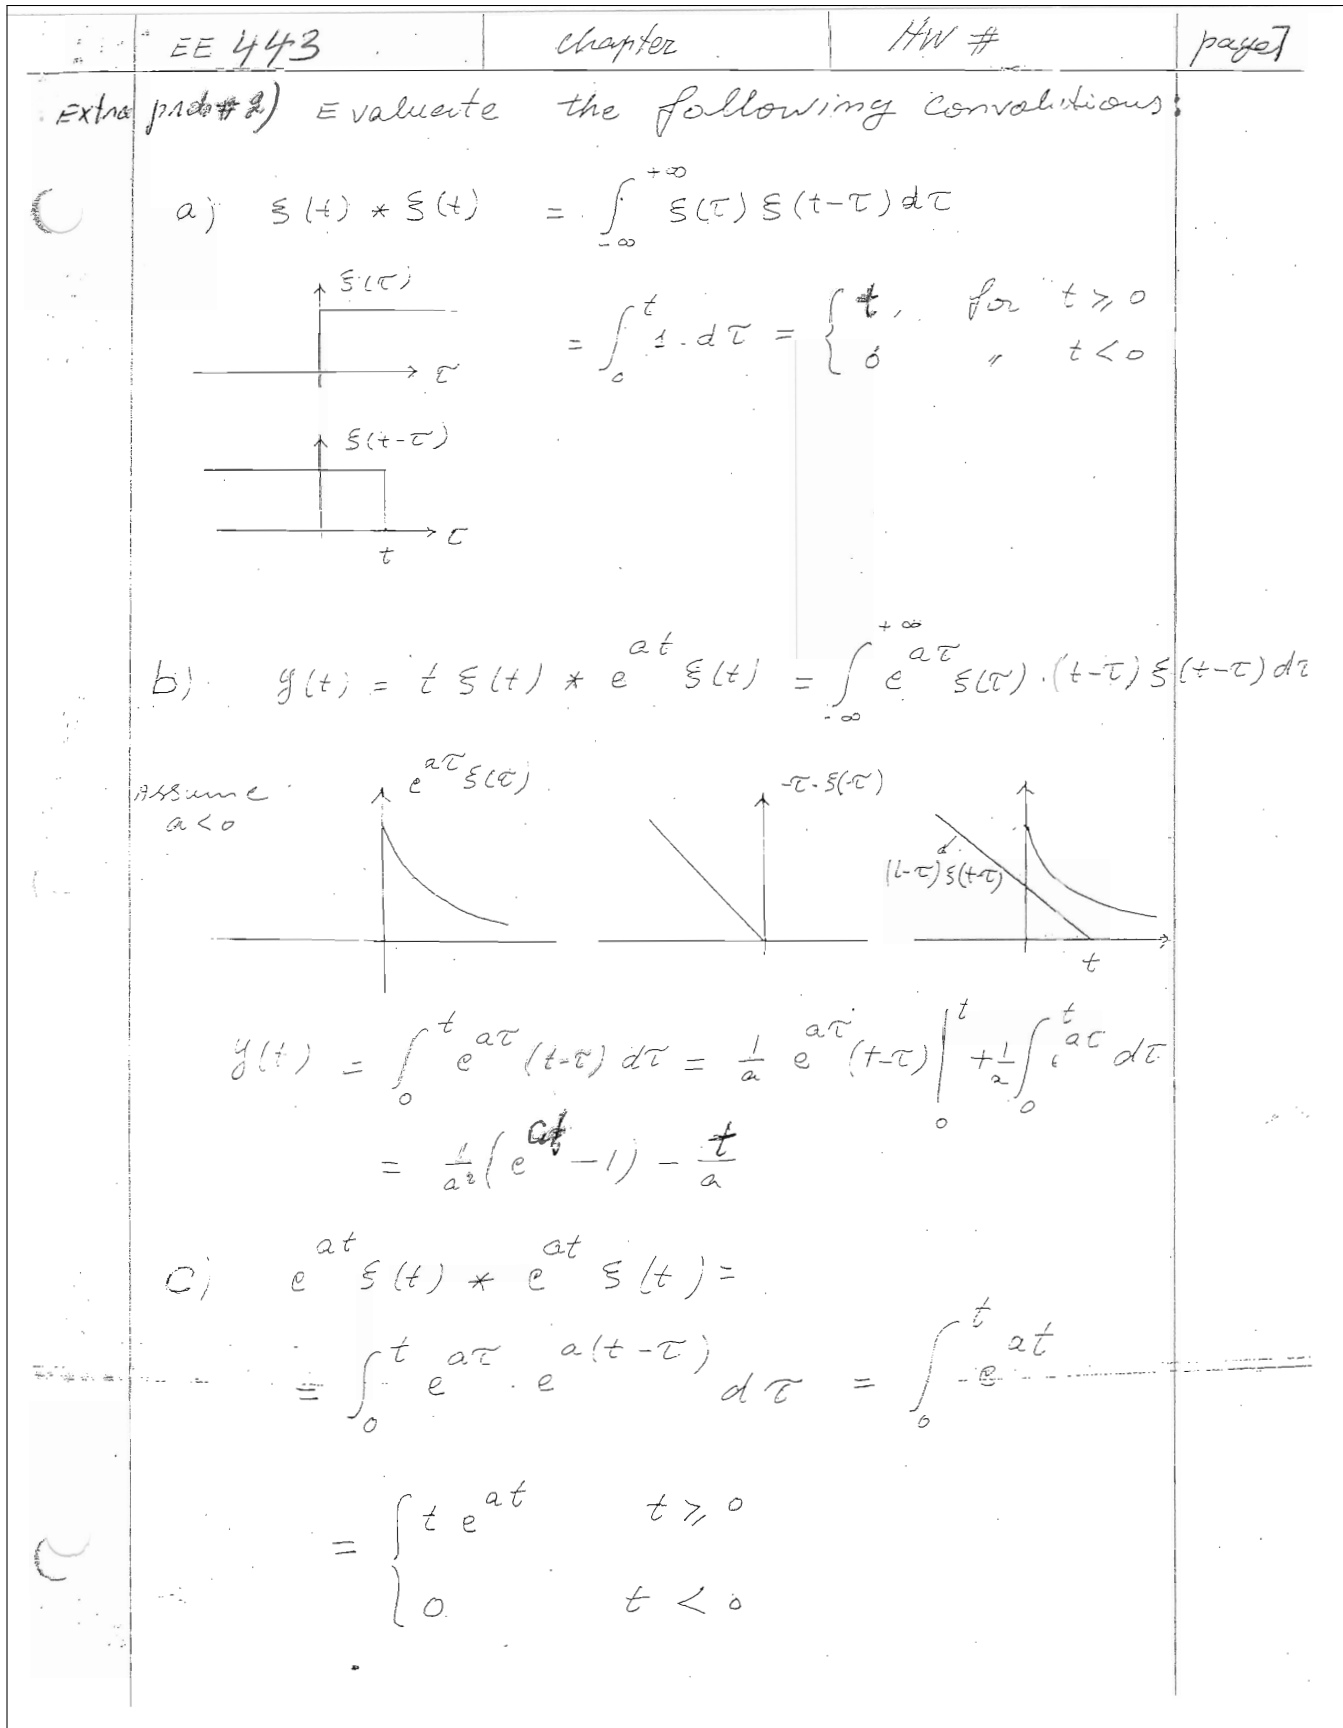 EE 443 chapter HW # page 7
Extra prob # 2) Evaluate the following convolutions:
a) ξ(t) * ξ(t) = ∫_{-∞}^{+∞} ξ(τ) ξ(t-τ) dτ
ξ(τ)
= ∫_0^t 1 · dτ = { t, for t ≥ 0
0 " t < 0
τ
ξ(t-τ)
τ
t
b) y(t) = t ξ(t) * e^{at} ξ(t) = ∫_{-∞}^{+∞} e^{aτ} ξ(τ) · (t-τ) ξ(t-τ) dτ
Assume e^{aτ} ξ(τ) -τ · ξ(-τ)
a < 0
(t-τ) ξ(t-τ)
t
y(t) = ∫_0^t e^{aτ} (t-τ) dτ = 1/a e^{aτ} (t-τ) |_0^t + 1/a ∫_0^t e^{aτ} dτ
= 1/a² (e^{at} - 1) - t/a
c) e^{at} ξ(t) * e^{at} ξ(t) =
= ∫_0^t e^{aτ} · e^{a(t-τ)} dτ = ∫_0^t e^{at}
= { t e^{at} t ≥ 0
0 t < 0